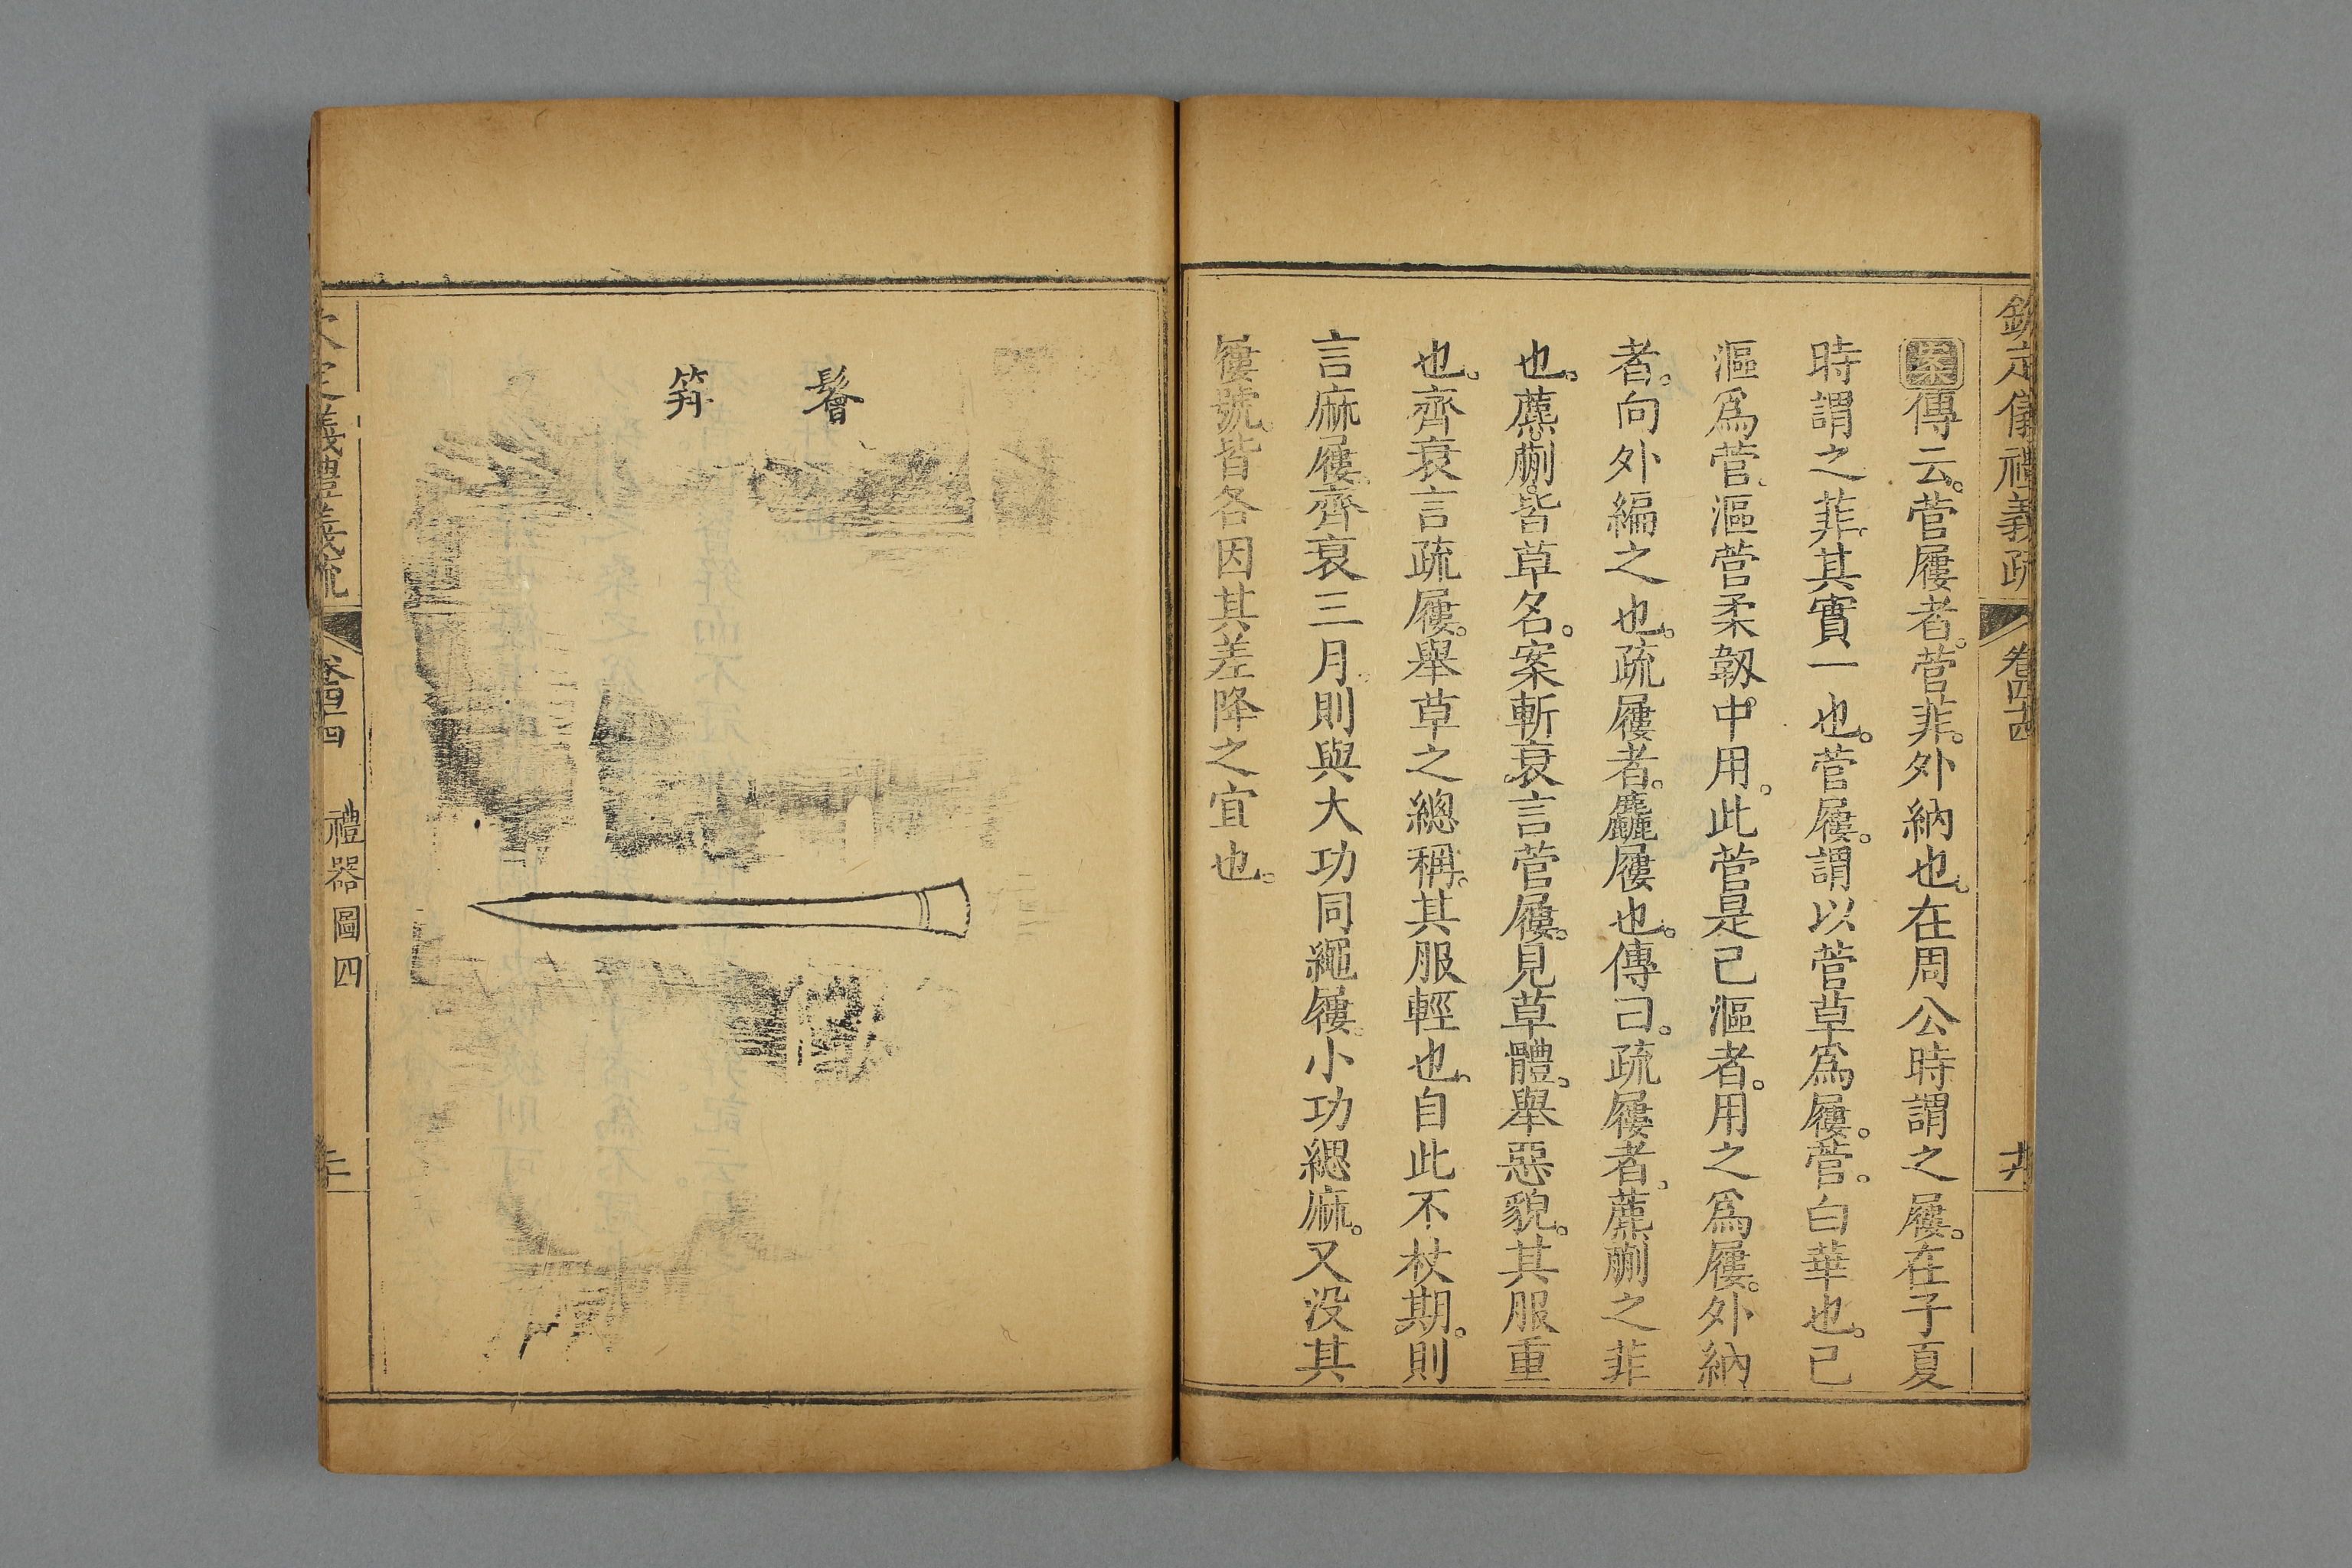 欽定儀禮義疏 卷四十四
案傳云。菅屨者。菅菲。外納也。在周公時謂之屨。在子夏
時謂之菲。其實一也。菅屨。謂以菅草爲屨。菅。白華也。已
漚爲菅。漚菅柔韌中用。此菅是已漚者。用之爲屨。外納
者。向外編之也。疏屨者。麤屨也。傳曰。疏屨者。藨蒯之菲
也。藨。蒯。皆草名。案斬衰言菅屨。見草體。舉惡貌。其服重
也。齊衰言疏屨。舉草之總稱。其服輕也。自此不杖期。則
言麻屨。齊衰三月。則與大功同繩屨。小功緦麻。又没其
屨號。皆各因其差降之宜也。
鬠
笄
義禮義疏 卷四十四 禮器圖四